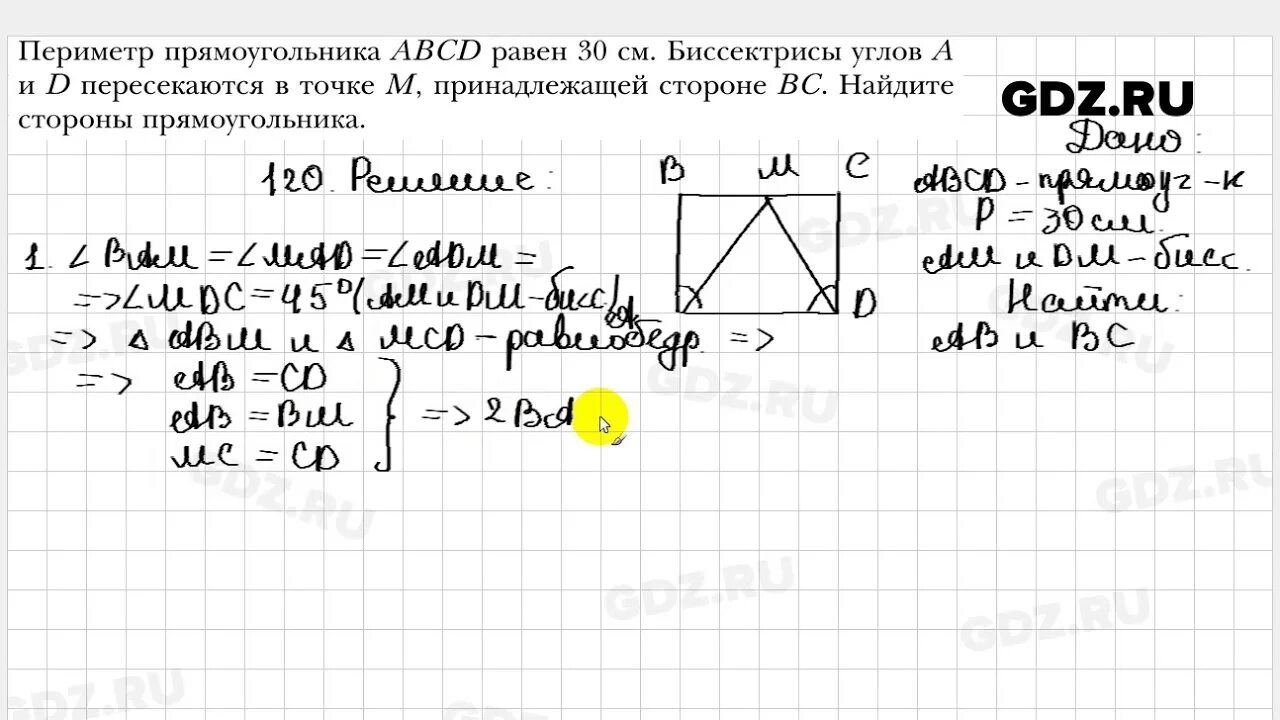 Периметр прямоугольника ABCD равен 30 см. Биссектрисы углов A
и D пересекаются в точке M, принадлежащей стороне BC. Найдите
стороны прямоугольника.
GDZ.RU
Дано:
ABCD - прямоуг-к
P = 30 см.
AM и DM - бисс.
Найти:
AB и BC
120. Решение:
B M C
A D
1. ∠BAM = ∠MAD = ∠ADM =
=> ∠MDC = 45° (AM и DM - бисс)
=> △ ABM и △ MCD - равнобедр. =>
=> AB = CD
AB = BM
MC = CD
} => 2BA
GDZ.RU
GDZ.RU
GDZ.RU
GDZ.RU
GDZ.RU
GDZ.RU
GDZ.RU
GDZ.RU
GDZ.RU
GDZ.RU
GDZ.RU